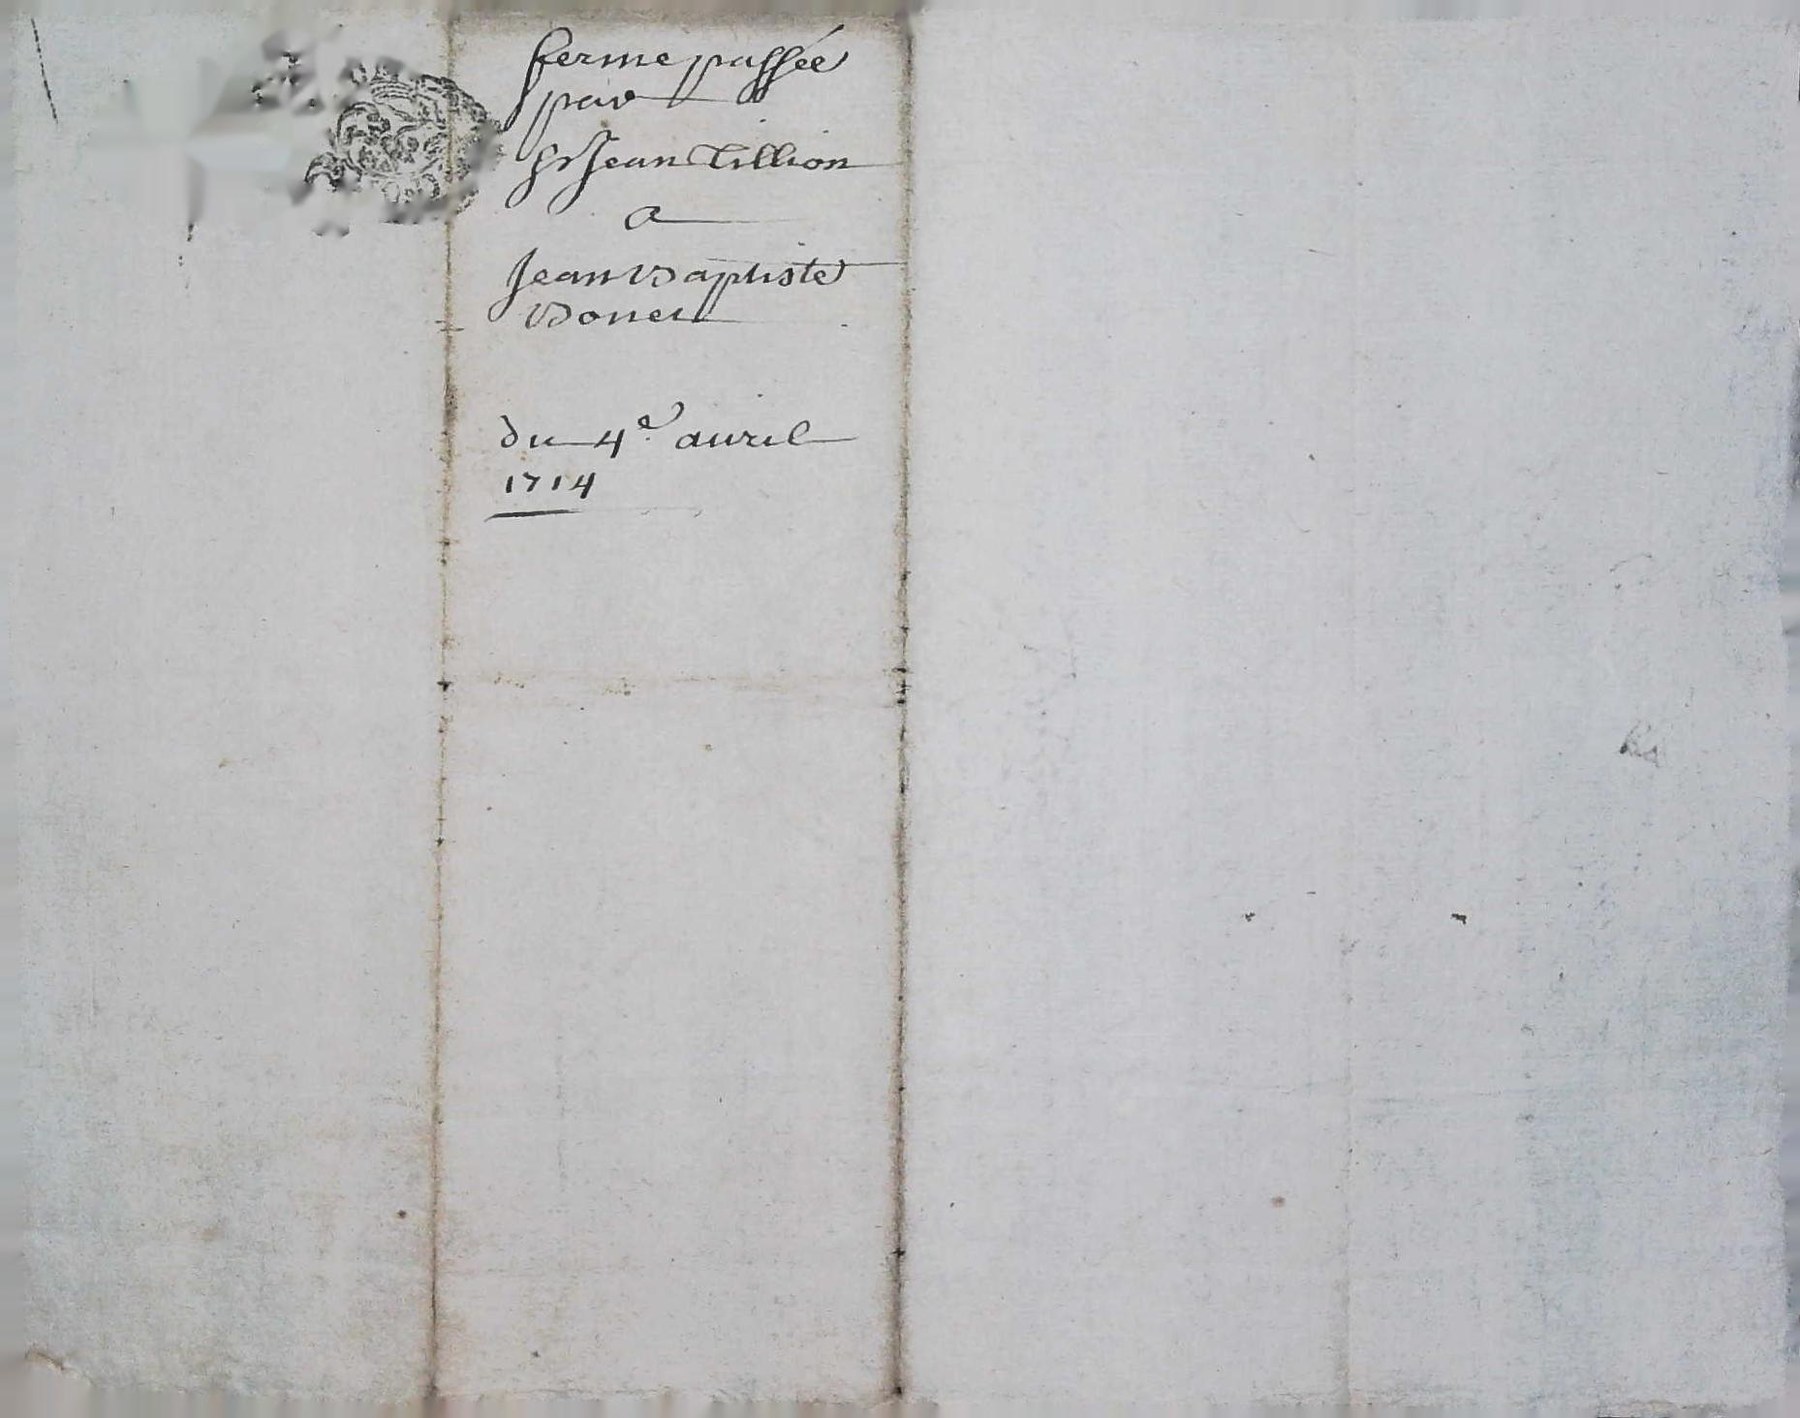 ferme passée
par
Sr Jean Tillion
a
Jean Baptiste
Bonet
du 4e. auril
1714